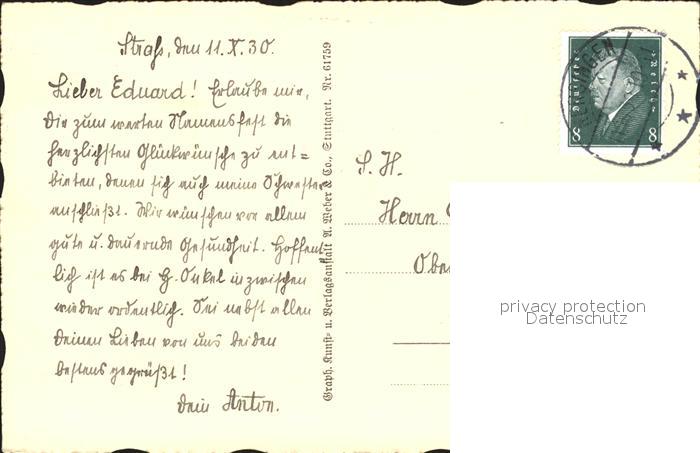 Straß, den 11.X.30.
Lieber Eduard! Erlaube mir,
Dir zum werten Namensfest die
herzlichsten Glückwünsche zu ent=
bieten, denen sich auch meine Schwester
anschließt. Wir wünschen vor allem
gute u. dauernde Gesundheit. Hoffent
lich ist es bei H. Onkel inzwischen
wieder ordentlich. Sei nebst allen
Deinen Lieben von uns beiden
bestens gegrüßt!
Dein Anton.
Graph. Kunst- u. Verlagsanstalt A. Weber & Co., Stuttgart. Nr. 61759
Deutsches Reich
8 8
S. H.
Herrn
Obe
privacy protection
Datenschutz